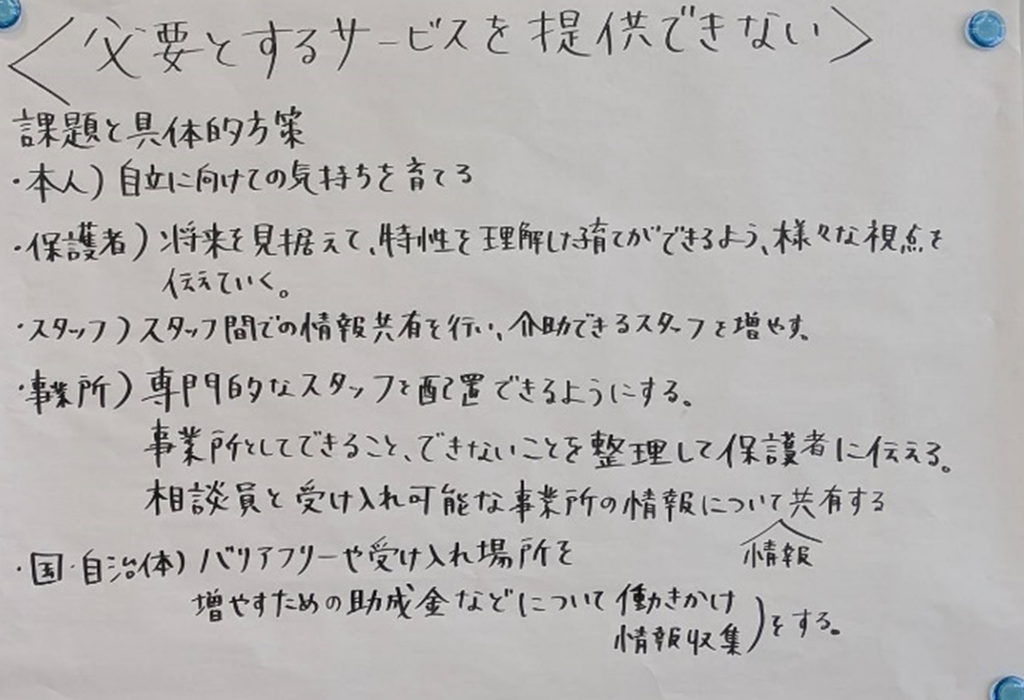 〈必要とするサービスを提供できない〉
課題と具体的方策
・本人）自立に向けての気持ちを育てる
・保護者）将来を見据えて、特性を理解した子育てができるよう、様々な視点を
伝えていく。
・スタッフ）スタッフ間での情報共有を行い、介助できるスタッフを増やす。
・事業所）専門的なスタッフを配置できるようにする。
事業所としてできること、できないことを整理して保護者に伝える。
相談員と受け入れ可能な事業所の情報について共有する
情報
・国・自治体）バリアフリーや受け入れ場所を
増やすための助成金などについて働きかけ
情報収集）をする。